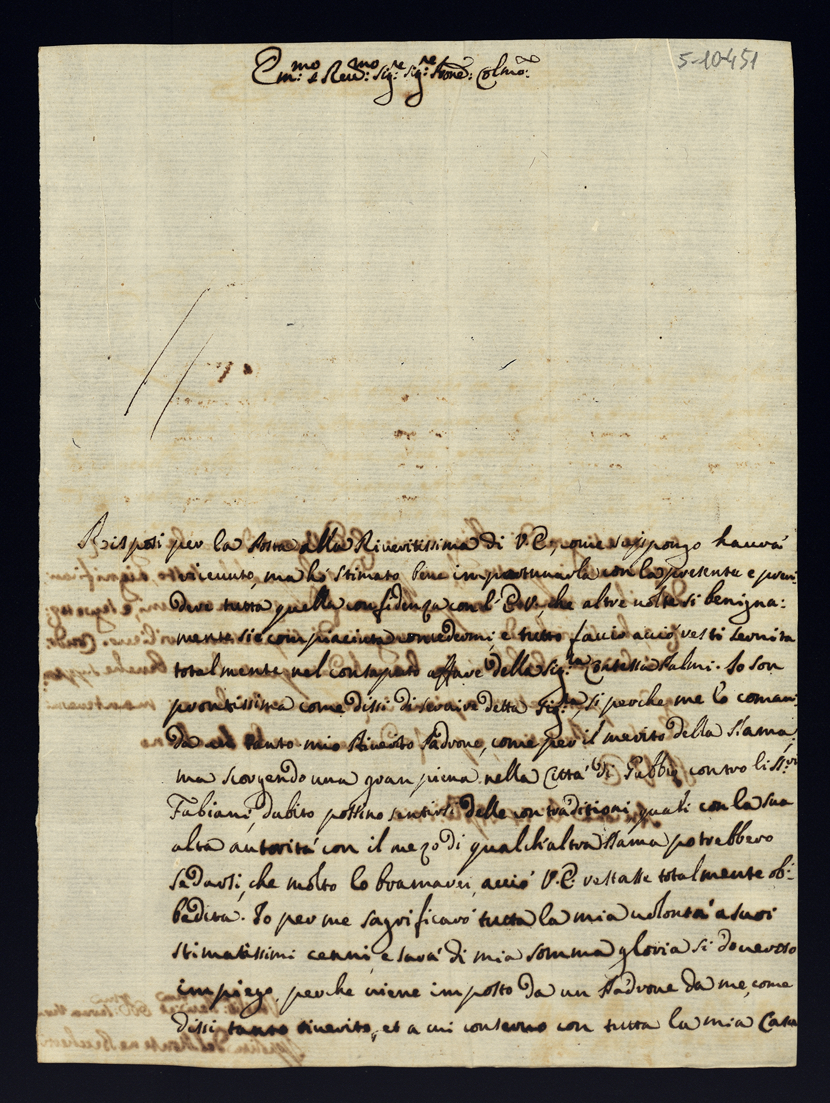 5-10-451
Em:mo e Rev:mo Sig:re Sig:re Prone: Colmo:
Risposi per la Posta alla Riveritissima di V.E., come suppongo haurà
ricevuto, ma hò stimato bene importunarla con la presente e pren:
dere tutta quella confidenza con l'E.V. che altre volte si benigna:
mente si è compiaciuta concedermi, e tutto faccio acciò resti servita
totalmente nel consaputo affare della Sig:ra Contessa Palmi. Io son
prontissima come dissi di servire detta Sig:ra, si perche me lo coman:
da un tanto mio Riverito Padrone, come per il merito della Dama,
ma scorgendo una gran piena nella Città di Gubbio contro li SS:ri
Fabiani, dubito possino sentirsi delle contraditioni, quali con la sua
alta autorità con il mezo di qualch'altra Dama potrebbero
sedarsi, che molto lo bramarei, acciò V.E. restasse totalmente ob:
bedita. Io per me sagrificarò tutta la mia volontà a suoi
stimatissimi cenni, e sarà di mia somma gloria si doveroso
impiego, perche viene imposto da un Padrone da me, come
dissi tanto riverito, et a cui conservo con tutta la mia Casa